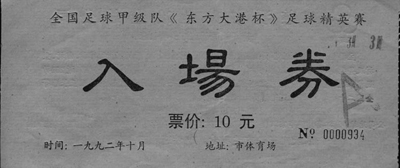 全国足球甲级队《东方大港杯》足球精英赛
入場券
票价: 10 元
№ 0000934
时间: 一九九二年十月 地址: 市体育场